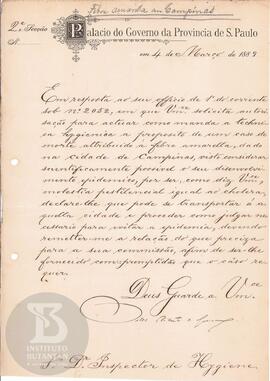 Febre amarela em Campinas
2ª Secção
Palacio do Governo da Provincia de S. Paulo
N.
em 4 de Março de 1889
Em resposta ao seu officio de 1º do corrente
sob nº 2052, em que Vmce solicita autori-
sação para actuar como manda a techni-
ca hygienica a proposito de um caso de
morte attribuida a febre amarella, da-
do na cidade de Campinas, visto considerar
scientificamente possivel o seu desenvolvi-
mento epidemico, por ser, como diz Vmce,
molestia pestilencial igual ao cholera,
declaro-lhe que pode se transportar á
quella cidade e proceder como julgar ne-
cessario para evitar a epidemia, devendo
remetter-me a relação do que precisa
para a sua commissão, afim de ser-lhe
fornecido com promptidão que o caso re-
quer.
Deus Guarde a Vmce
Sr. Dr. Inspector de Hygiene
INSTITUTO
BUTANTAN